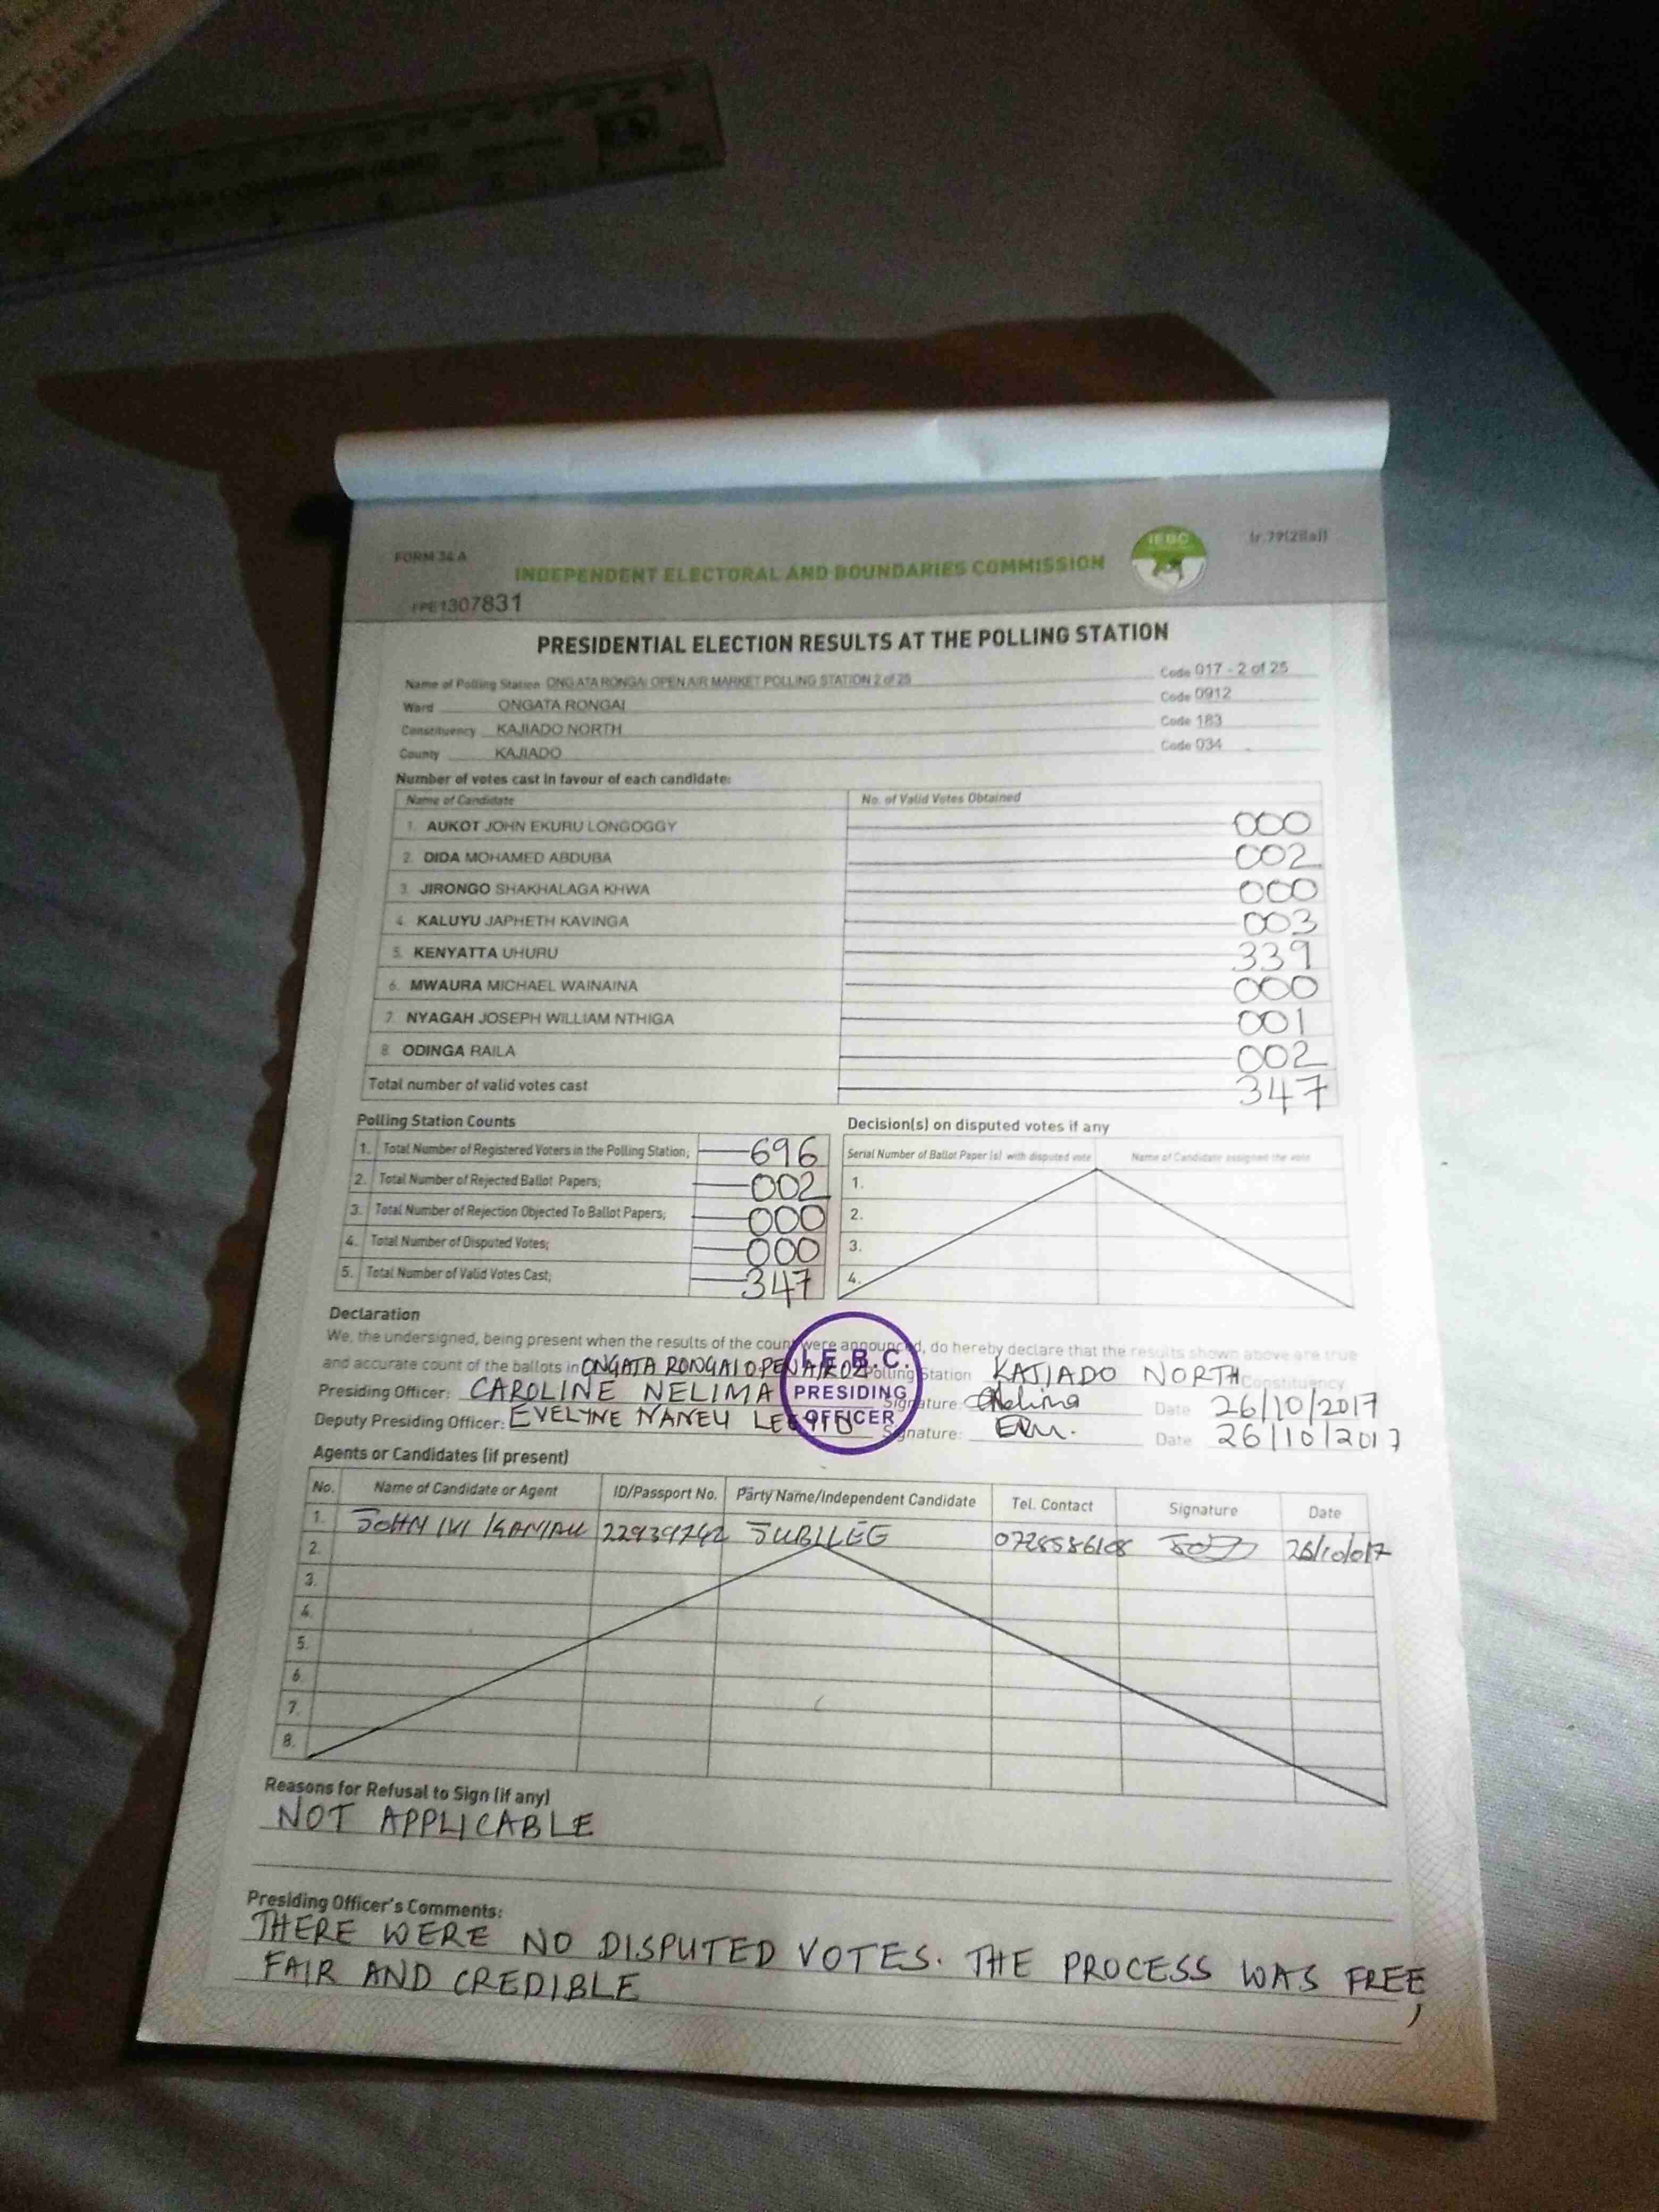 FORM 34 A
INDEPENDENT ELECTORAL AND BOUNDARIES COMMISSION
IEBC
FPE1307831
PRESIDENTIAL ELECTION RESULTS AT THE POLLING STATION
Name of Polling Station ONGATA RONGAI OPEN AIR MARKET POLLING STATION 2 of 25 Code 017 - 2 of 25
Ward ONGATA RONGAI Code 0912
Constituency KAJIADO NORTH Code 183
County KAJIADO Code 034
Number of votes cast in favour of each candidate:
Name of Candidate No. of Valid Votes Obtained
1. AUKOT JOHN EKURU LONGOGGY 000
2. DIDA MOHAMED ABDUBA 002
3. JIRONGO SHAKHALAGA KHWA 000
4. KALUYU JAPHETH KAVINGA 003
5. KENYATTA UHURU 339
6. MWAURA MICHAEL WAINAINA 000
7. NYAGAH JOSEPH WILLIAM NTHIGA 001
8. ODINGA RAILA 002
Total number of valid votes cast 347
Polling Station Counts
1. Total Number of Registered Voters in the Polling Station; 696
2. Total Number of Rejected Ballot Papers; 002
3. Total Number of Rejection Objected To Ballot Papers; 000
4. Total Number of Disputed Votes; 000
5. Total Number of Valid Votes Cast; 347
Decision(s) on disputed votes if any
Serial Number of Ballot Paper (s) with disputed vote Name of Candidate assigned the vote
1.
2.
3.
4.
Declaration
We, the undersigned, being present when the results of the count were announced, do hereby declare that the results shown above are true
and accurate count of the ballots in ONGATA RONGAI OPEN AIR 02 Polling Station KAJIADO NORTH Constituency
Presiding Officer: CAROLINE NELIMA Signature: Date 26/10/2017
Deputy Presiding Officer: EVELYNE Signature: Date 26/10/2017
I.E.B.C.
PRESIDING
OFFICER
Agents or Candidates (if present)
No. Name of Candidate or Agent ID/Passport No. Party Name/Independent Candidate Tel. Contact Signature Date
1. JOHN 22939742 JUBILEE
2.
3.
4.
5.
6.
7.
8.
Reasons for Refusal to Sign (if any)
NOT APPLICABLE
Presiding Officer's Comments:
THERE WERE NO DISPUTED VOTES. THE PROCESS WAS FREE,
FAIR AND CREDIBLE